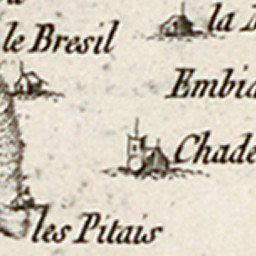 le Bresil
la
Embia
Chade
les Pitais